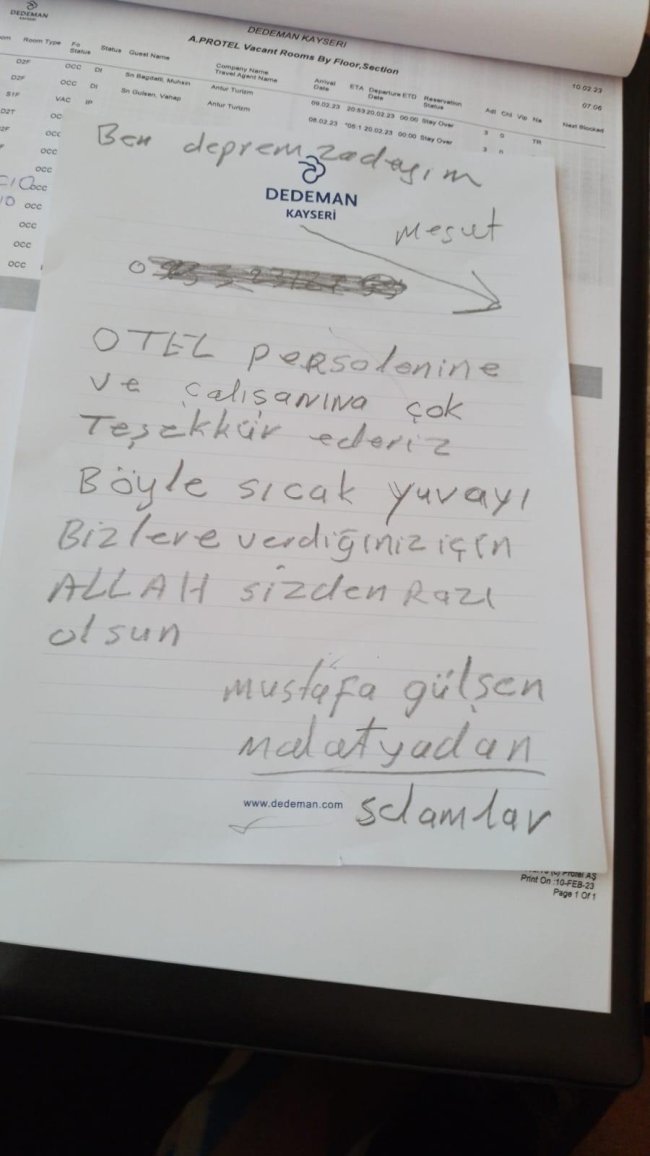 DEDEMAN
KAYSERİ
DEDEMAN KAYSERI
A.PROTEL Vacant Rooms By Floor,Section
10.02.23
07:06
Room Type Fo Status Status Guest Name Company Name Travel Agent Name Arrival Date ETA Departure Date ETD Reservation Status Adl Chl Vip Na Next Blocked
D2F OCC DI Sn Bagdatli, Muhsin Antur Turizm 09.02.23 20:53 20.02.23 00:00 Stay Over 3 0 TR
D2F OCC DI Sn Gulsen, Vahap Antur Turizm 08.02.23 20.02.23 00:00 Stay Over 3
S1F VAC IP
D2T OC
OCC
OCC
OCC
OCC
OCC
OCC
OCC
Ben depremzadeyim
DEDEMAN
KAYSERİ
Mesut
OTEL persolenine
ve çalışanına çok
Teşekkür ederiz
Böyle sıcak yuvayı
Bizlere verdiğiniz için
ALLAH sizden Razı
olsun
mustafa gülşen
malatyadan
www.dedeman.com
selamlar
Protel AŞ
Print On :10-FEB-23
Page 1 Of 1